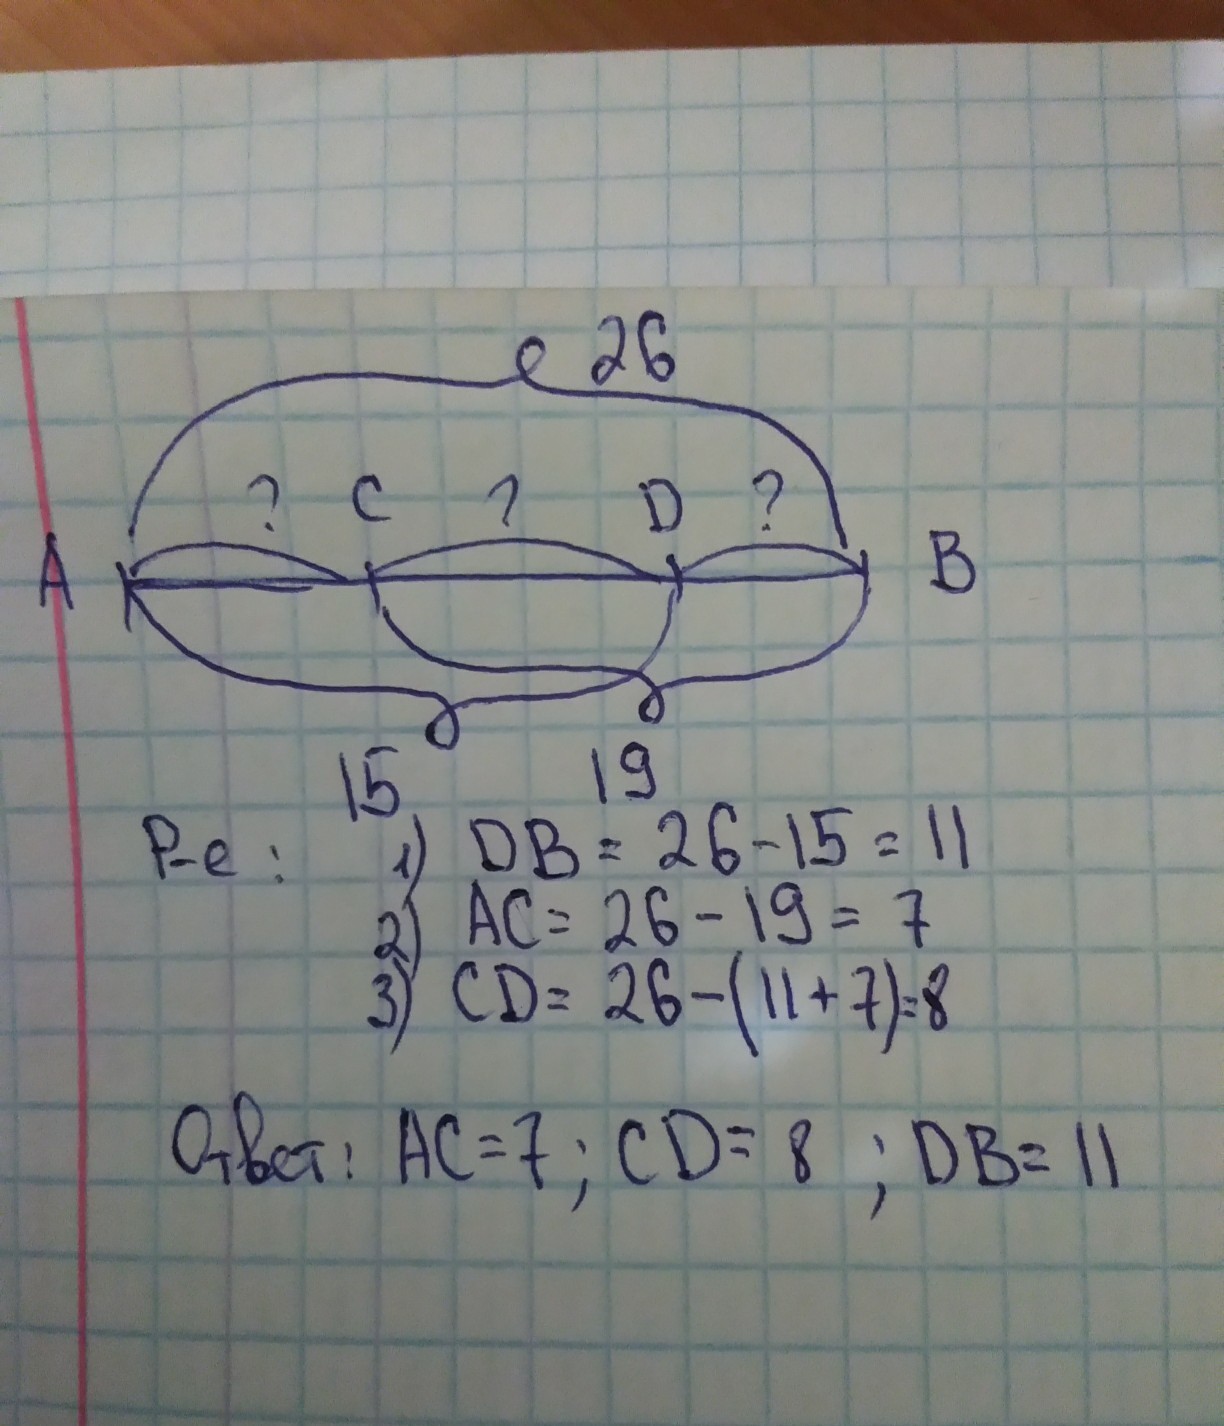 26
? C ? D ?
A B
15 19
Р-е: 1) DB = 26-15 = 11
2) AC = 26 - 19 = 7
3) CD = 26 - (11 + 7) = 8
Ответ: AC = 7 ; CD = 8 ; DB = 11